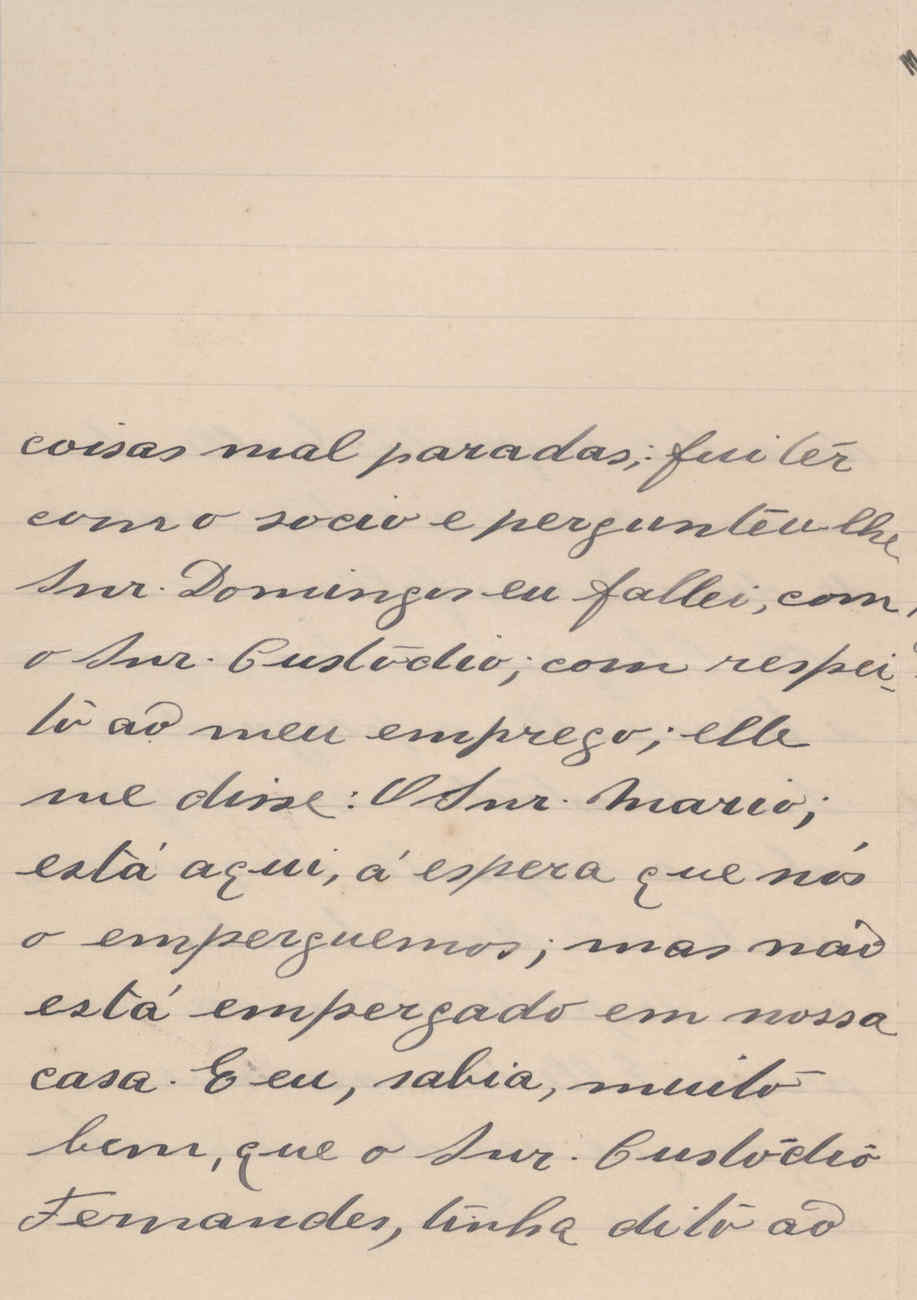 coisas mal paradas; fui ter
com o socio e perguntou-lhe
Snr. Domingos eu fallei, com,
o Snr. Custódio; com respei-
to ao meu emprego; elle
me disse: O Snr. Mario;
está aqui, á espera que nós
o emperguemos; mas não
está empergado em nossa
casa. E eu, sabia, muito
bem, que o Snr. Custódio
Fernandes, tinha dito ao